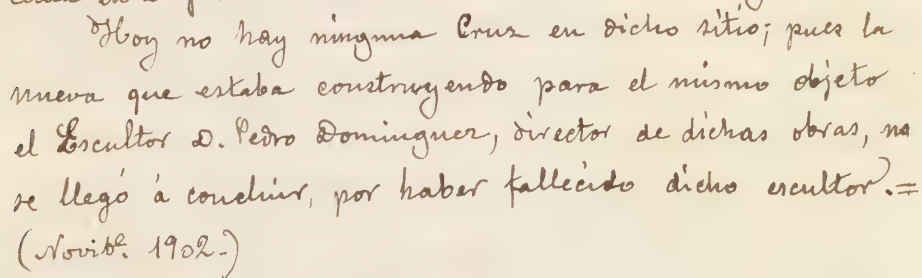 Hoy no hay ninguna Cruz en dicho sitio; pues la
nueva que estaba construyendo para el mismo objeto
el Escultor D. Pedro Dominguez, director de dichas obras, no
se llegó á concluir, por haber fallecido dicho escultor.=
(Novibᵉ. 1902.-)